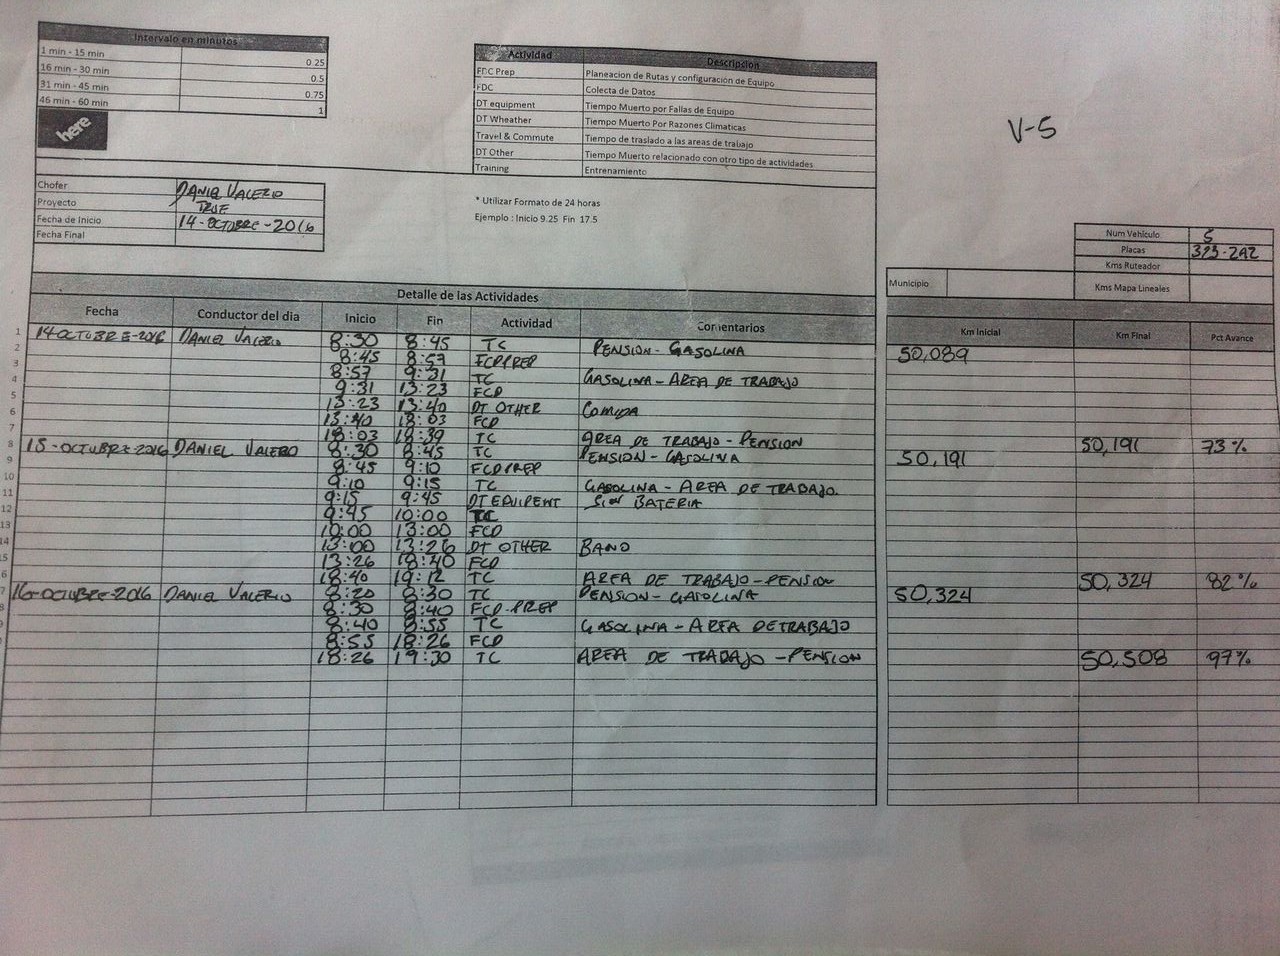 Intervalo en minutos
1 min - 15 min 0.25
16 min - 30 min 0.5
31 min - 45 min 0.75
46 min - 60 min 1
here
Actividad Descripcion
FDC Prep Planeacion de Rutas y configuración de Equipo
FDC Colecta de Datos
DT equipment Tiempo Muerto por Fallas de Equipo
DT Wheather Tiempo Muerto Por Razones Climaticas
Travel & Commute Tiempo de traslado a las areas de trabajo
DT Other Tiempo Muerto relacionado con otro tipo de actividades
Training Entrenamiento
V-5
Chofer DANIEL VALERIO
Proyecto
Fecha de Inicio 14-OCTUBRE-2016
Fecha Final
* Utilizar Formato de 24 horas
Ejemplo : Inicio 9.25 Fin 17.5
Num Vehiculo 5
Placas 323-ZAZ
Kms Ruteador
Kms Mapa Lineales
Municipio
Detalle de las Actividades
Fecha Conductor del dia Inicio Fin Actividad Comentarios Km Inicial Km Final Pct Avance
1 14 OCTUBRE-2016 DANIEL VALERIO 8:30 8:45 TC PENSION-GASOLINA 50,089
2 8:45 8:57 FCP/PREP
3 8:57 9:31 TC GASOLINA-AREA DE TRABAJO
4 9:31 13:23 FCD
5 13:23 13:40 DT OTHER COMIDA
6 13:40 18:03 FCD
7 18:03 18:39 TC AREA DE TRABAJO-PENSION 50,191 73%
8 15-OCTUBRE-2016 DANIEL VALERIO 8:30 8:45 TC PENSION-GASOLINA 50,191
9 8:45 9:10 FCD/PREP
10 9:10 9:15 TC GASOLINA-AREA DE TRABAJO.
11 9:15 9:45 DT EQUIPENT SIN BATERIA
12 9:45 10:00 TC
13 10:00 13:00 FCD
14 13:00 13:26 DT OTHER BANO
15 13:26 18:40 FCD
6 18:40 19:12 TC AREA DE TRABAJO-PENSION 50,324 82%
7 16-OCTUBRE-2016 DANIEL VALERIO 8:20 8:30 TC PENSION-GASOLINA 50,324
8 8:30 8:40 FCD-PREP
9 8:40 8:55 TC GASOLINA-AREA DETRABAJO
8:55 18:26 FCD
18:26 19:30 TC AREA DE TRABAJO-PENSION 50,508 97%